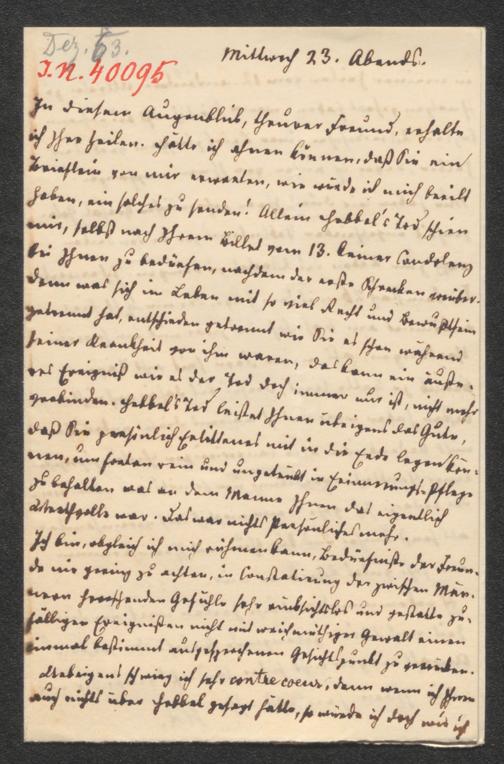 Dez. 63.
I.N. 40095
Mittwoch 23. Abends.
In diesem Augenblick, theurer Freund, erhalte
ich Ihre Zeilen. Hätte ich ahnen können, daß Sie ein
Brieflein von mir erwarten, wie würde ich mich beeilt
haben, ein solches zu senden! Allein Hebbel's Tod schien
mir, selbst nach Ihrem Billet vom 13. keiner Condolenz
bei Ihnen zu bedürfen, nachdem der erste Schrecken vorüber.
Denn was sich im Leben mit so viel Recht und Bewußtsein
getrennt hat, entschieden getrennt wie Sie es schon während
seiner Krankheit von ihm waren, das kann ein äuße-
res Ereigniß wie es der Tod doch immer nur ist, nicht mehr
verbinden. Hebbel's Tod leistet Ihnen übrigens das Gute,
daß Sie persönlich Erlittenes mit in die Erde legen kön-
nen, um fortan rein und ungetrübt in Erinnerungs-Pflege
zu behalten was an dem Manne Ihnen das eigentlich
Werthvolle war. Das war nichts Persönliches mehr.
Ich bin, obgleich ich mich rühmen kann, Bedürfnisse der Freun-
de nie gering zu achten, in Constatirung der zwischen Män-
nern herrschenden Gefühle sehr rücksichtslos und gestatte zu-
fälligen Ereignißen nicht mit weichmüthiger Gewalt einen
einmal bestimmt ausgesprochenen Gesichtspunkt zu verrücken.
Uebrigens schwieg ich sehr contre coeur, denn wenn ich Ihnen
auch nichts über Hebbel gesagt hätte, so würde ich doch wie ich